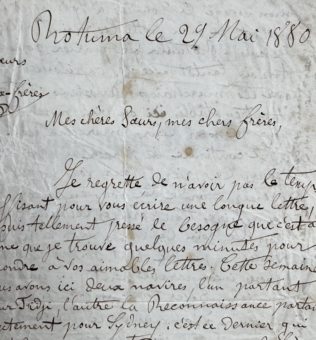 Rotuma le 29 Mai 1880
œurs
x-frères
Mes chères Sœurs, mes chers frères,
Je regrette de n'avoir pas le temps
ffisant pour vous écrire une longue lettre,
suis tellement pressé de besogne que c'est à
ine que je trouve quelques minutes pour
ondre à vos aimables lettres. Cette Semaine
us avons ici deux navires, l'un partant
ur Fidji, l'autre la Reconnaissance partan
ctement pour Sydney, c'est ce Dernier qui